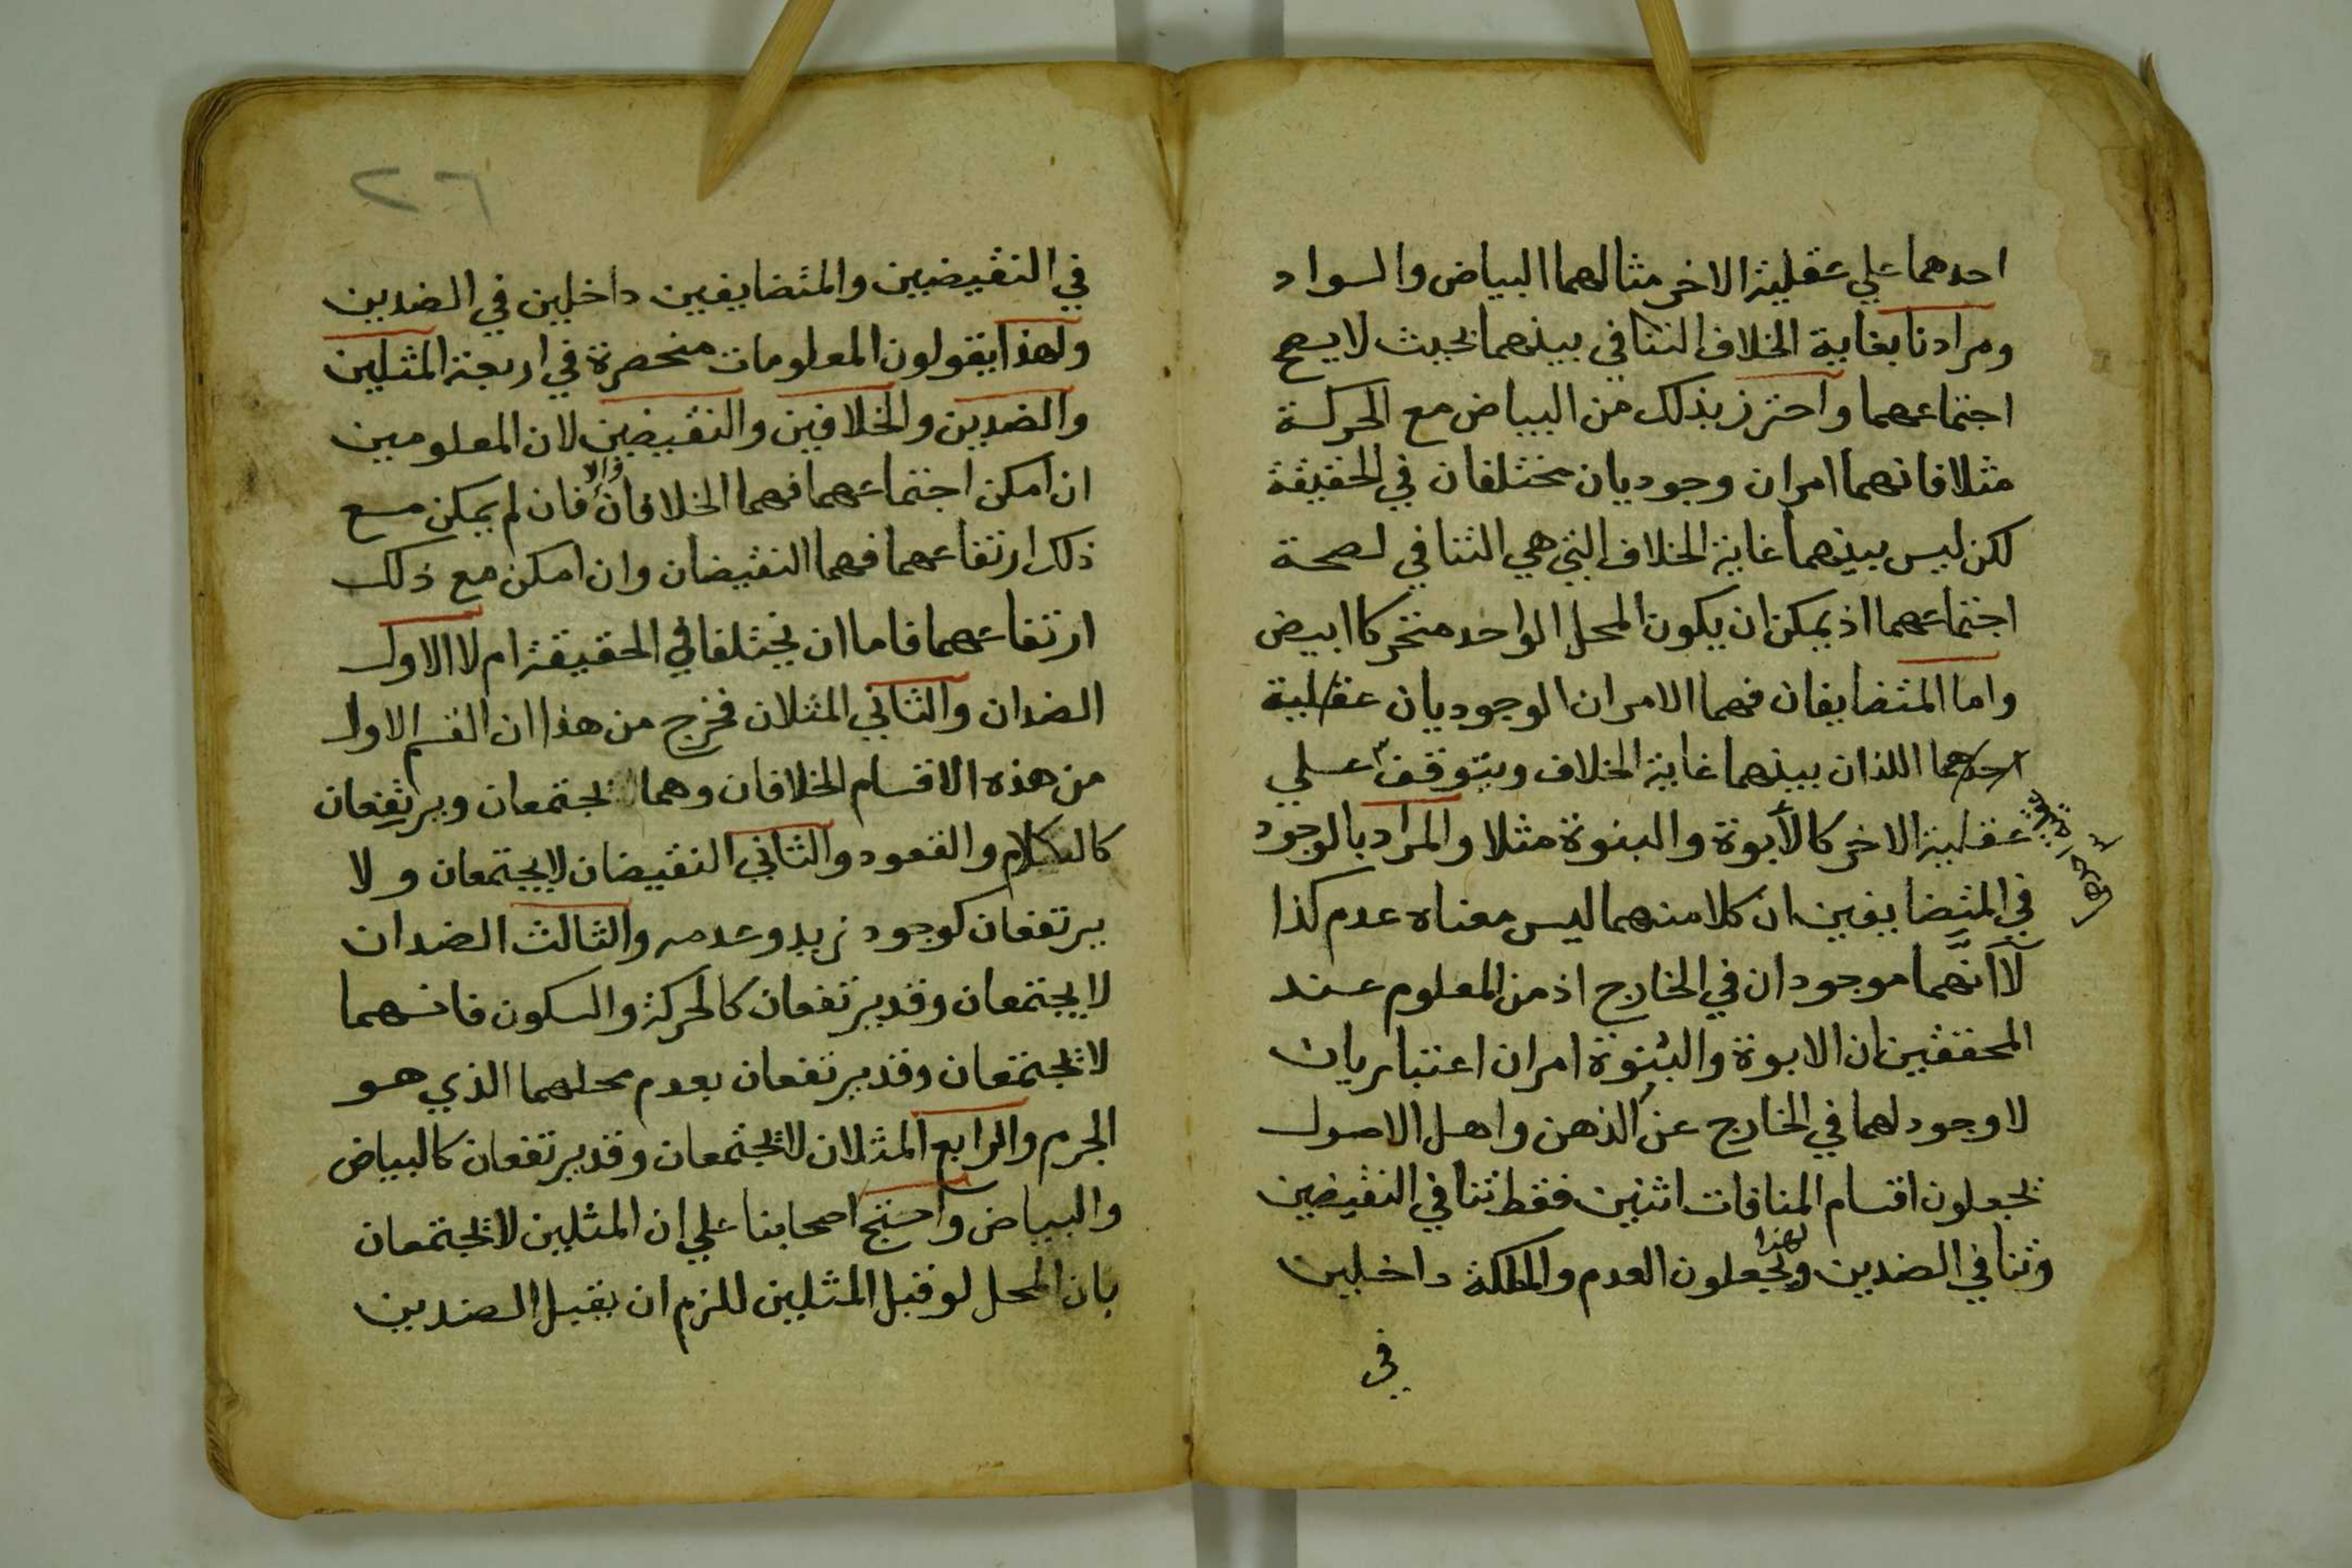 احدهما علي عقلية الاخر مثالهما البياض والسواد
ومرادنا بغاية الخلاف التنافي بينهما بحيث لا يصح
اجتماعهما واحترز بذلك من البياض مع الحركة
مثلا فانهما امران وجوديان مختلفان في الحقيقة
لكن ليس بينهما غاية الخلاف التي هي التنافي لصحة
اجتماعهما اذ يمكن ان يكون المحل الواحد متحركا ابيض
واما المتضايفان فهما الامران الوجوديان عقلية
احدهما اللذان بينهما غاية الخلاف ويتوقف علي
عقلية الاخر كالأبوة والبنوة مثلا والمراد بالوجود
عقلية احدهما
في المتضايفين ان كلا منهما ليس معناه عدم كذا
لا أنهما موجودان في الخارج اذ من المعلوم عند
المحققين ان الابوة والبنوة امران اعتباريان
لا وجود لهما في الخارج عن الذهن واهل الاصول
يجعلون اقسام المنافات اثنين فقط تنافي النقيضين
وتنافي الضدين ولهذا يجعلون العدم والملكة داخلين
في
٢٦
في النقيضين والمتضايفين داخلين في الضدين
ولهذا يقولون المعلومات منحصرة في اربعة المثلين
والضدين والخلافين والنقيضين لان المعلومين
ان امكن اجتماعهما فهما الخلافان والا فان لم يمكن مع
ذلك ارتفاعهما فهما النقيضان وان امكن مع ذلك
ارتفاعهما فاما ان يختلفا في الحقيقة ام لا الاول
الضدان والثاني المثلان فخرج من هذا ان القسم الاول
من هذه الاقسام الخلافان وهما يجتمعان ويرتفعان
كالكلام والقعود والثاني النقيضان لا يجتمعان ولا
يرتفعان كوجود زيد وعدمه والثالث الضدان
لا يجتمعان وقد يرتفعان كالحركة والسكون فانهما
لا يجتمعان وقد يرتفعان بعدم محلهما الذي هو
الجرم والرابع المثلان لا يجتمعان وقد يرتفعان كالبياض
والبياض واحتج اصحابنا علي ان المثلين لا يجتمعان
بان المحل لو قبل المثلين للزم ان يقبل الضدين